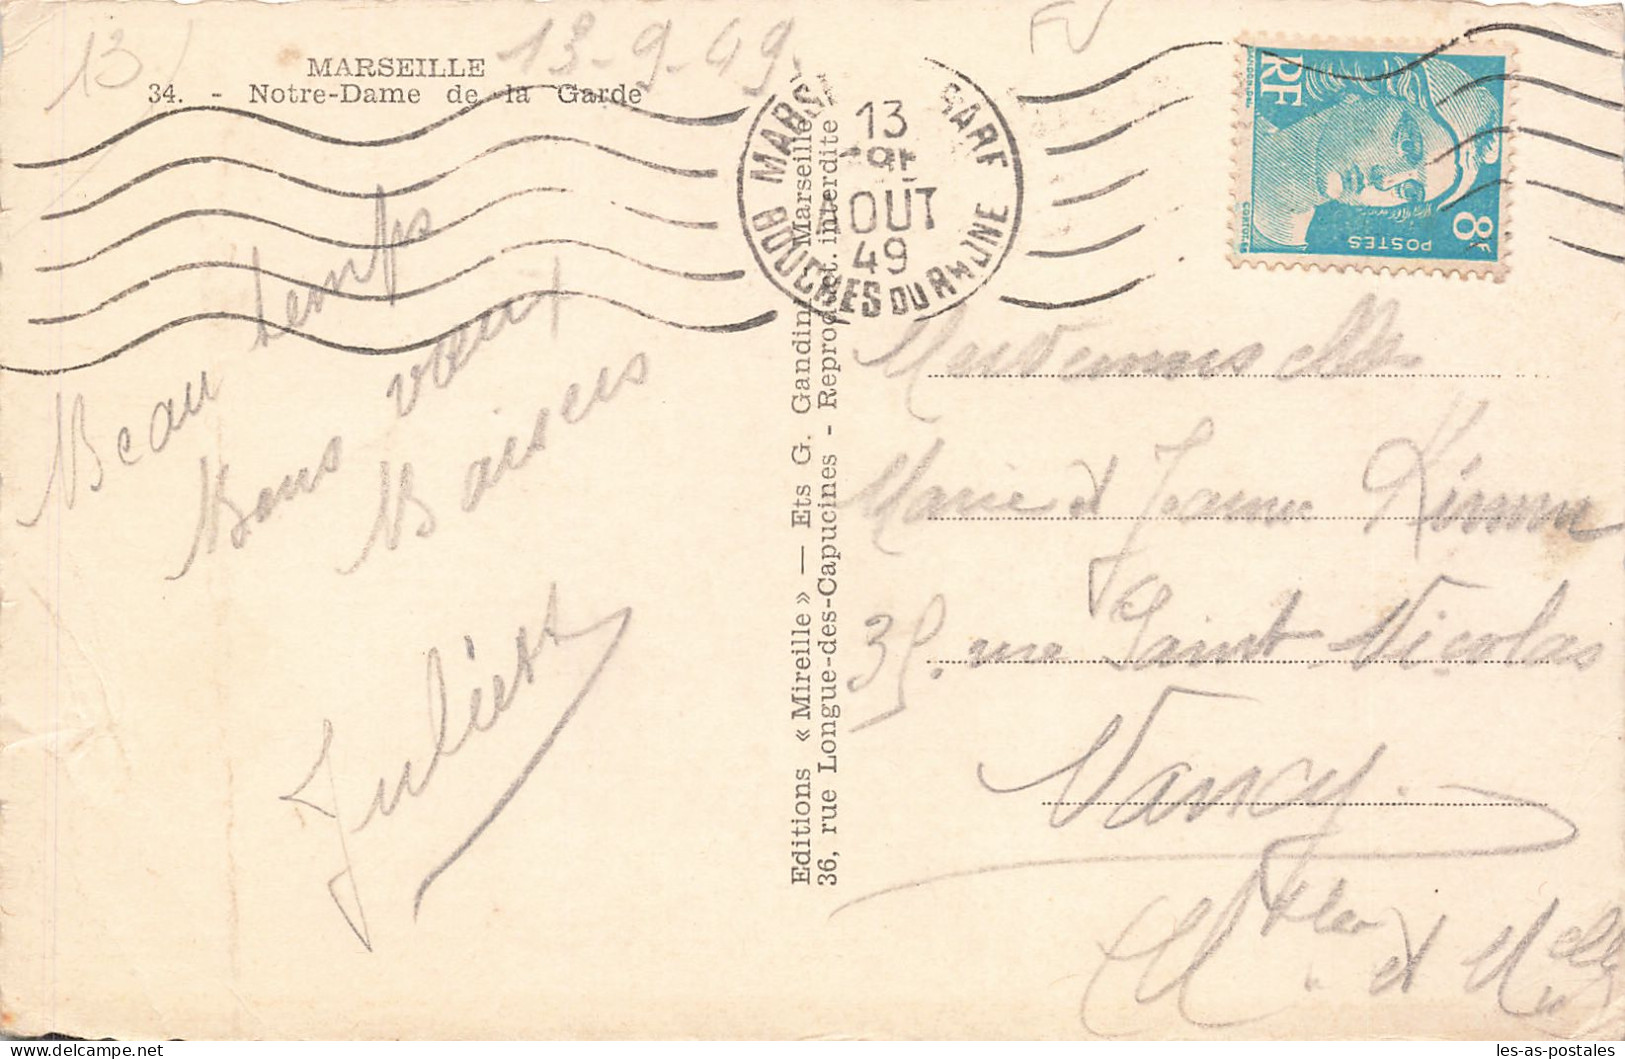 13
13-9-49.
FV
MARSEILLE
34. - Notre-Dame de la Garde
Beau temps
Bons vœux
Baisers
Juliette
Editions « Mireille » — Ets G. Gandini, Marseille
36, rue Longue-des-Capucines - Reproduct. interdite
MARS GARE
13
AOUT
49
BOUCHES DU RHONE
RF
8F
POSTES
GANDON
Mesdemoiselles
Marie et Jeanne
35, rue Saint Nicolas
Nancy
M et M elle
les-as-postales.com